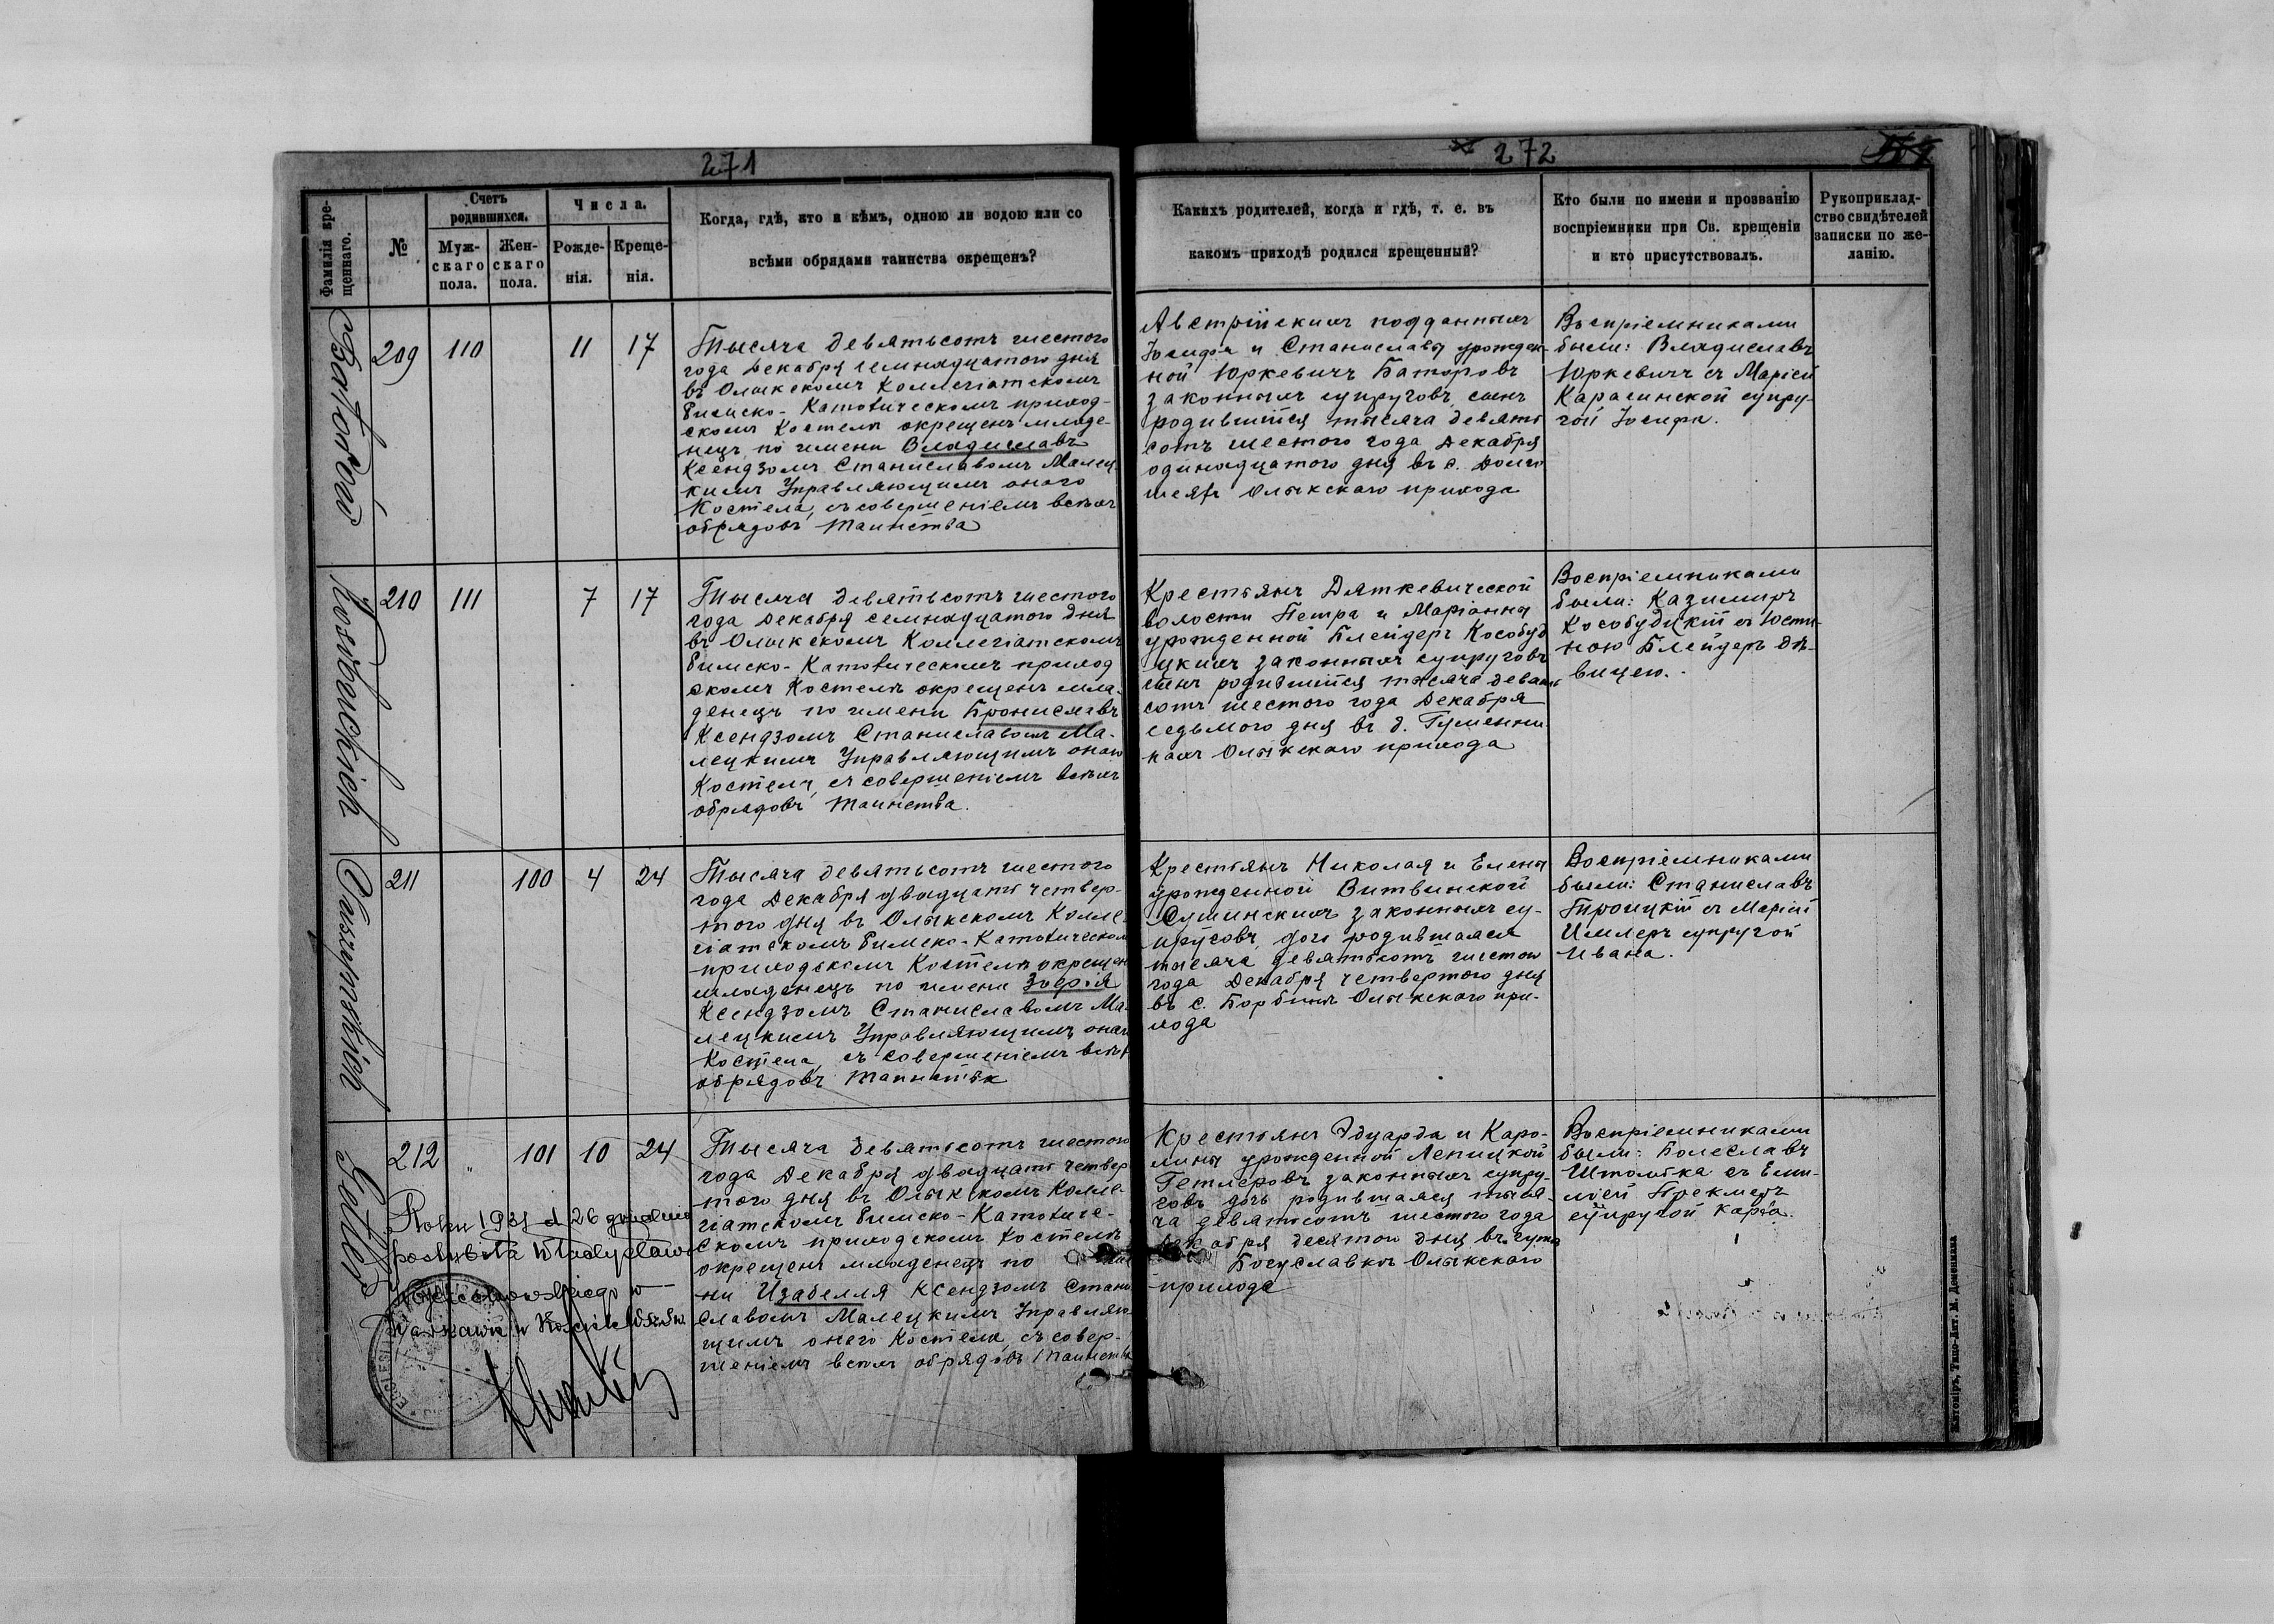 271
Фамилія кре-
щеннаго.
№
Счетъ
родившихся.
Муж-
скаго
пола.
Жен-
скаго
пола.
Числа.
Рожде-
нія.
Креще-
нія.
Когда, гдѣ, кто и кѣмъ, одною ли водою или со
всѣми обрядами таинства окрещенъ?
272
Какихъ родителей, когда и гдѣ, т. е. въ
какомъ приходѣ родился крещенный?
Кто были по имени и прозванію
воспріемники при Св. крещеніи
и кто присутствовалъ.
Рукоприклад-
ство свидѣтелей
записки по же-
ланію.
209
110
11
17
Тысяча девятьсотъ шестого
года Декабря семнадцатого дня
въ Олыкскомъ Коллегіатскомъ
Римско-Католическомъ приход-
скомъ Костелѣ окрещенъ младе-
нецъ по имени Владиславъ
Ксендзомъ Станиславомъ Малец-
кимъ Управляющимъ оного
Костела, съ совершеніемъ всѣхъ
обрядовъ Таинства
Австрійскихъ подданныхъ
Іосифа и Станиславы урожден-
ной Юркевичъ Баторовъ
законныхъ супруговъ сынъ
родившійся тысяча девять
сотъ шестого года Декабря
одинадцатого дня въ с. Долго
шеяхъ Олыкскаго прихода
Воспріемниками
были: Владиславъ
Юркевичъ съ Маріей
Карасинской супру-
гой Іосифа.
210
111
7
17
Тысяча девятьсотъ шестого
года Декабря семнадцатого дня
въ Олыкскомъ Коллегіатскомъ
Римско-Католическомъ приход
скомъ Костелѣ окрещенъ мла-
денецъ по имени Брониславъ
Ксендзомъ Станиславомъ Ма-
лецкимъ Управляющимъ оного
Костела, съ совершеніемъ всѣхъ
обрядовъ Таинства.
Крестьянъ Дяткевической
волости Петра и Маріанны
урожденной Блейдеръ Кособуд
цкихъ законныхъ супруговъ
сынъ родившійся тысяча девять
сотъ шестого года Декабря
седьмого дня въ д. Гуменни-
кахъ Олыкскаго прихода
Воспріемниками
были: Казимиръ
Кособудцкій съ Юсти-
ною Блейдеръ дѣ-
вицею.
211
100
4
24
Тысяча девятьсотъ шестого
года Декабря двадцать четвер-
того дня въ Олыкскомъ Колле-
гіатскомъ Римско-Католическом
приходскомъ Костелѣ окрещен
младенецъ по имени Зофія
Ксендзомъ Станиславомъ Ма-
лецкимъ Управляющимъ оного
Костела, съ совершеніемъ всѣхъ
обрядовъ Таинства
Крестьянъ Николая и Елены
урожденной Витвинской
законныхъ су-
пруговъ, дочь родившаяся
тысяча девятьсотъ шестого
года Декабря четвертого дня
въ с. Олыкскаго при-
хода
Воспріемниками
были: Станиславъ
Троицкій съ Маріей
супругой
Ивана.
Getler
212
"
101
10
24
Тысяча девятьсотъ шестого
года Декабря двадцать четвер
того дня въ Олыкскомъ Колле-
гіатскомъ Римско-Католиче-
скомъ приходскомъ Костелѣ
окрещенъ младенецъ по
ни Изабелля Ксендзомъ Стани
славомъ Малецкимъ Управляю
щимъ оного Костела, съ совер-
шеніемъ всѣхъ обрядовъ Таинства
Крестьянъ Эдуарда и Каро-
лины урожденной Лепицкой
Гетлеровъ законныхъ супру-
говъ дочь родившаяся тыся-
ча девятьсотъ шестого года
Декабря десятого дня въ
Богуславкѣ Олыкскаго
прихода
Воспріемниками
были: Болеславъ
съ Еми-
ліей
супругой Карла.
Roku 1931 d 26 grudnia
poślubiła Władysława
w
Warszawie w
Житомiръ, Типо-Лит. М. Дененмана